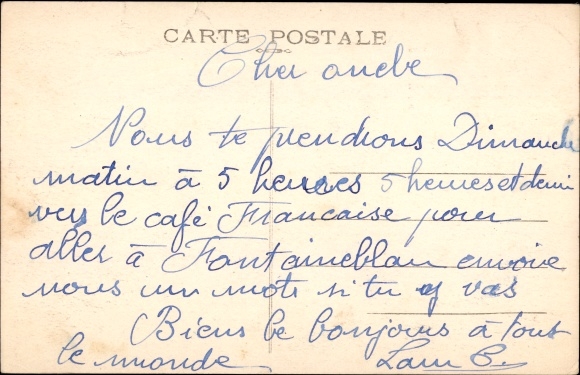 CARTE POSTALE
Cher oncle
Nous te prendrons Dimanche
matin à 5 heures 5 heures et demi
vers le café Francaise pour
aller à Fontaineblau envoie
nous un mots si tu y vas
Biens le bonjours à tout
le monde